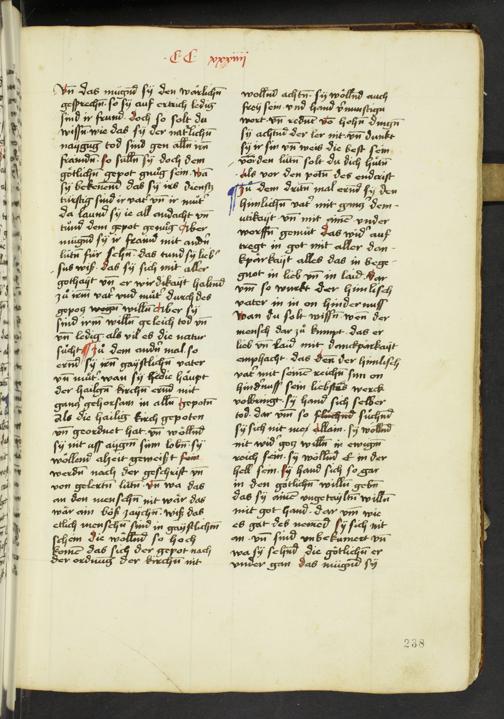 CC xxxviiij
Vn̄ das mügnd sÿ den wärlichn̄
gesprechn̄ so sÿ auf ertrich ledig
sind ir fraind. doch so solt du
wissn̄ wie das sÿ der natlichn̄
naÿgūg tod sind gen alln̄ irn̄
frainden so sülln̄ sÿ doch dem
götlichn̄ gepot gnüg sein wā
sÿ bekennd das sÿ irs diensts
türftig sind ir vat' vn̄ ir müt'
da laund sÿ ie all andacht vn̄
tund dem gepot genüg Aber
mügnd sÿ ir fraind mit andn̄
lütn̄ für sehn̄ das tund sÿ lieb'
sus wiss das sÿ sich mit aller
gothaÿt vn̄ er wirdikaÿt habnd
zü irm vat' vnd müt' durch des
gepoz wegn̄ willn̄ Aber sÿ
sind irm willn̄ geleich tod vn̄
vn̄ ledig als vil es die natur
sücht Zü dem andn̄ mal so
ernd sÿ irn̄ gaÿstlichn̄ vater
vn̄ müt' wan sÿ hand haupt
der hailgn̄ kirchn̄ ernd mit
gantz gehorsam in alln̄ gepotn̄
Als die hailig kirch gepoten
vn̄ geordnet hat vn̄ wolln̄d
sÿ nit uss aÿgm̄ sinn lobn̄ sÿ
wöllend alzeit geweist sein
werdn̄ nach der geschrift vn̄
von gelertn̄ lütn̄ vn̄ wa das
an den menschn̄ nit wär das
wär ain böss zaÿchn̄ wiss das
etlich menschn̄ sind in gaÿstlichm̄
schein die wöllnd so hoch
komē das sich der gepot nach
der ordnūg der kirchn̄ nit
wöllnd achtn̄ sÿ wöllnd auch
freÿ sein vnd hand v'nunftign̄
wort vn̄ rednt vō hohn̄ dingn̄
sÿ achtnd der ler nit vn̄ dunkt
sÿ ir sin vn̄ weis die best sein
vor den lütn̄ solt du dich hütn̄
als vor den potn̄ des endcrist
Zü dem dritn̄ mal ernd sÿ den
himlichn̄ vat' mit gantz dem-
ütikaÿt vn̄ mit ainē vnder
worffn̄ gemüt das wid' auf
tregt in got mit aller dan-
kparkaÿt alles das in bege-
gnet in lieb vn̄ in laid dar
vm̄ so würkt der himlisch
vater in in on hindernuss
Wan du solt wissn̄ wen der
mensch dar zü kumpt das er
lieb vn̄ laid mit danckparkaÿt
empfacht das den der himlisch
vat' mit seinē reichn̄ sun on
hindnuss sein liebstes werck
volbringt sÿ hand sich selber
tod dar vm̄ so süchnd
sÿ sich nit mer allain sÿ wöllnd
nit wid' gotz willn̄ in ewign̄
reich sein sÿ wöllnd E in der
hell sein sÿ hand sich so gar
in den götlichn̄ willn̄ gebn̄
das sÿ ainē vngetailtn̄ willn̄
mit got hand dar vm̄ wie
es gat des nemēd sÿ sich nit
an vn̄ sind vnbekümert vn̄
wa sÿ sehnd die götlichn̄ er
vnder gan das mügnd sÿ
238